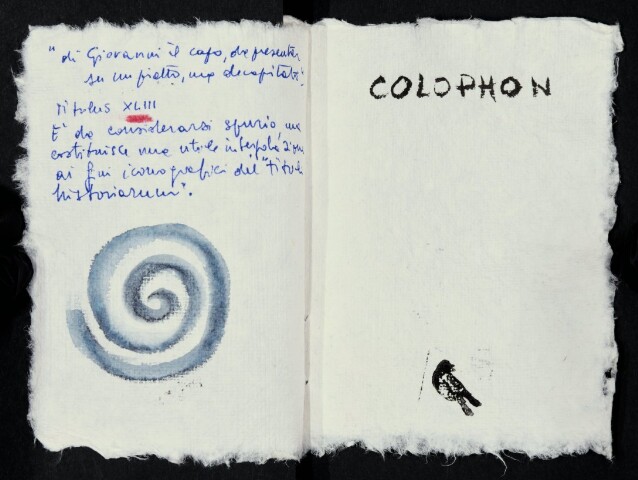 "di Giovanni il capo, da presentar
su un piatto, ma decapitato".
Titulus XLIII
E' da considerarsi spurio, ma
costituisce una utile interpolazione
ai fini iconografici del "tituli
historiarum".
COLOPHON